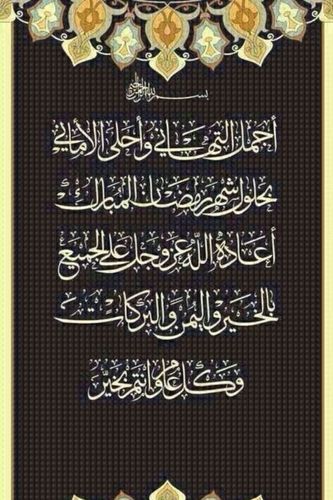 بسم الله الرحمن الرحيم
أجمل التهاني وأحلى الأماني
بحلول شهر رمضان المبارك
أعاده الله عز وجل على الجميع
بالخير واليمن والبركات
وكل عام وأنتم بخير